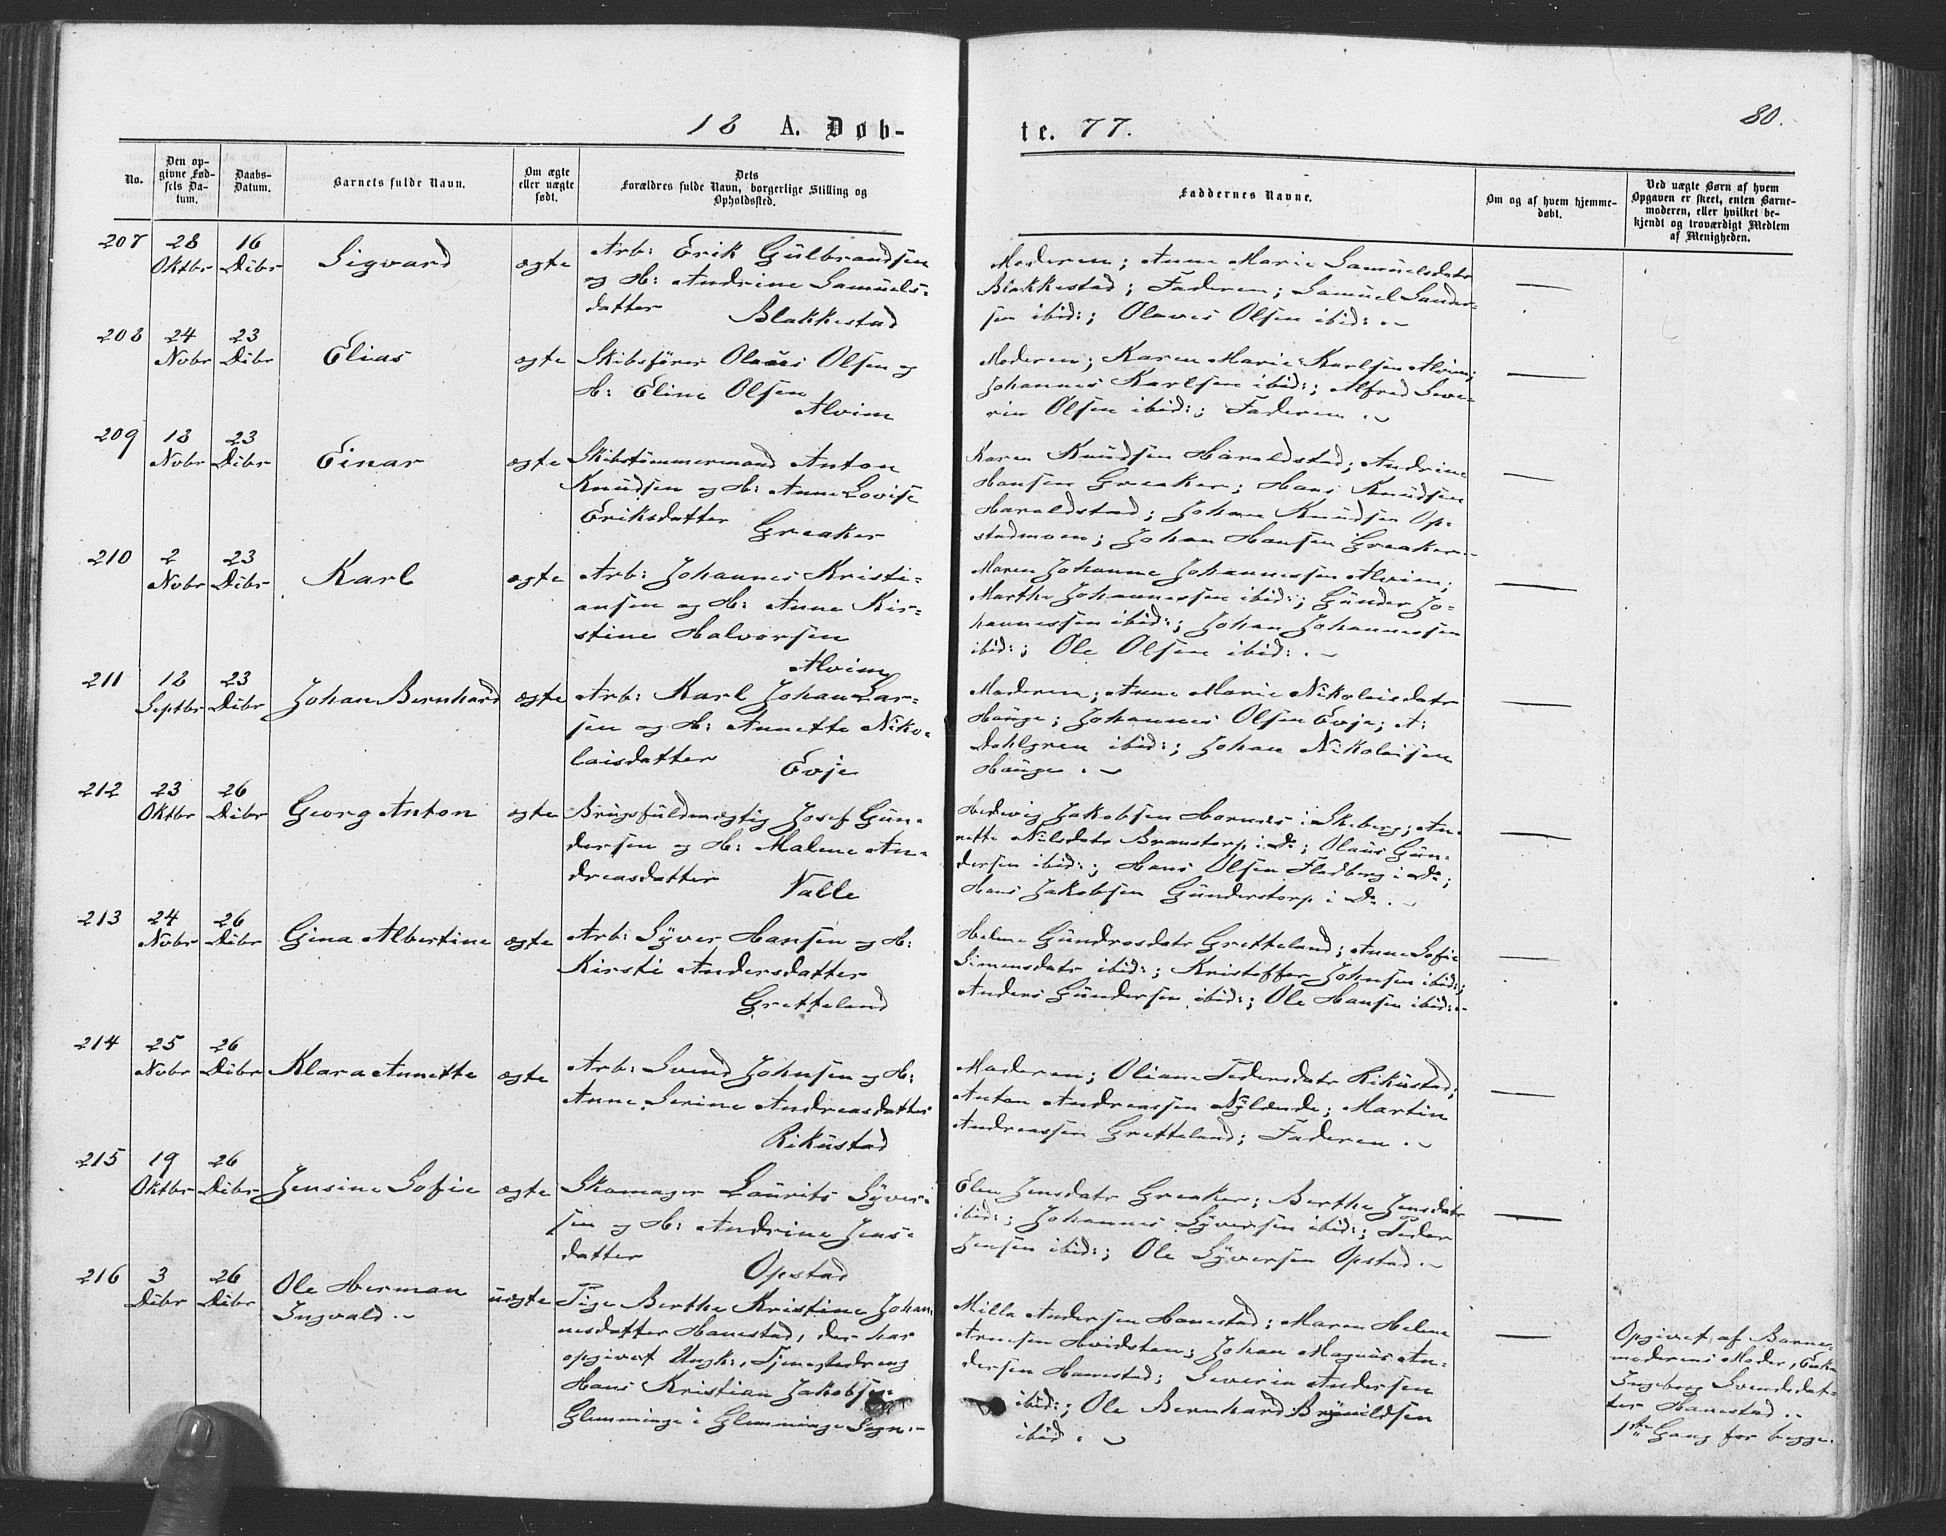 18 A. Døb-
te. 77.
80.
No.
Den op-
givne Fød-
sels Da-
tum.
Daabs-
Datum.
Barnets fulde Navn.
Om ægte
eller uægte
født.
Dets
Forældres fulde Navn, borgerlige Stilling og
Opholdssted.
Faddernes Navne.
Om og af hvem hjemme-
døbt.
Ved uægte Børn af hvem
Opgaven er skeet, enten Barne-
moderen, eller hvilket be-
kjendt og troværdigt Medlem
af Menigheden.
207 28 Oktbr 16 Dcbr Sigvard ægte
Arb: Erik Gulbrandsen
og H: Andrine Samuels-
datter Blakkestad
Moderen; Anne Marie Samuelsdatr
Blakkestad; Faderen; Samuel Sander-
sen ibid:; Olaves Olsen ibid:
208 24 Nvbr 23 Dcbr Elias ægte
Skibsfører Olaves Olsen og
H: Eline Olsen
Alvim
Moderen; Karen Marie Karlsen Alvim;
Johannes Karlsen ibid:; Alfred Seve-
rin Olsen ibid:; Faderen
209 18 Nvbr 23 Dcbr Einar ægte
Skibstømmermand Anton
Knudsen og H: Anne Lovise
Eriksdatter Greaker
Karen Knudsen Haraldstad; Andrine
Hansen Greaker; Hans Knudsen
Haraldstad; Johan Knudsen Op-
stadmoen; Johan Hansen Greaker
210 2 Nvbr 23 Dcbr Karl ægte
Arb: Johannes Kristi-
ansen og H: Anne Kir-
stine Halvorsen
Alvim
Maren Johanne Johannessen Alvim;
Marthe Johannessen ibid:; Gunder Jo-
hannessen ibid:; Johan Johannessen
ibid:; Ole Olsen ibid:
211 12 Septbr 23 Dcbr Johan Bernhard ægte
Arb: Karl Johan Lar-
sen og H: Annette Niko-
laisdatter Evje
Moderen; Anne Marie Nikolaisdatr
Hauge; Johannes Olsen Evje; A:
Dahlgren ibid:; Johan Nikolaisen
Hauge
212 23 Oktbr 26 Dcbr Georg Anton ægte
Brugsfuldmægtig Josef Gun-
dersen og H: Malene An-
dreasdatter Valle
Hedevig Jakobsen Hornes i Skeberg; An-
nette Nilsdatr Branstorp i Do; Olaus Gun-
dersen ibid:; Hans Olsen Fladberg i Do;
Hans Jakobsen Gunderstorp i Do
213 24 Nvbr 26 Dcbr Gina Albertine ægte
Arb: Syver Hansen og H:
Kirsti Andersdatter
Gretteland
Helene Gundrosdatr Gretteland; Anne Sofie
Simensdatr ibid:; Kristoffer Johnsen ibid:;
Anders Gundersen ibid:; Ole Hansen ibid:
214 25 Nvbr 26 Dcbr Klara Annette ægte
Arb: Svend Johnsen og H:
Anne Serine Andreasdatter
Rikustad
Moderen; Oliane Pedersdatr Rikustad;
Anton Andreassen Nylænde; Martin
Andreassen Gretteland; Faderen
215 19 Oktbr 26 Dcbr Jensine Sofie ægte
Skomager Laurits Syver-
sen og H: Andrine Jens-
datter Opstad
Elen Jensdatr Greaker; Berthe Jensdatr
ibid:; Johannes Syversen ibid:; Peder
Jensen ibid:; Ole Syversen Opstad
216 3 Dcbr 26 Dcbr Ole Herman
Ingvald uægte
Pige Berthe Kristine Johan-
nesdatter Hanestad, der har
opgivet Ungk:, Tjenestedreng
Hans Kristian Jakobsen
Glemminge i Glemminge Sogn
Milla Andersen Hanestad; Maren Helene
Arnesen Hvidsten; Johan Magnus An-
dersen Hanestad; Severin Andersen
ibid:; Ole Bernhard Brynildsen
ibid
Opgivet af Barne-
moderens Moder, Enke
Ingeborg Svendsdat-
ter Hanestad
1ste Gang for begge